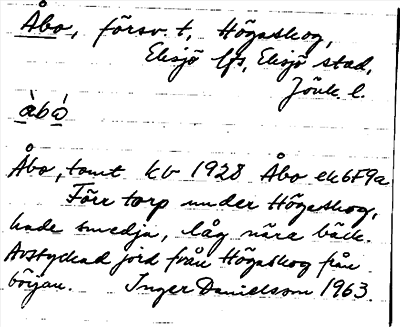 Åbo, försv. t, Högaskog,
Eksjö lfs, Eksjö stad,
Jönk. l.
àbó
Åbo, tomt kv 1928 Åbo ek 6F9a
Förr torp under Högaskog,
hade smedja, låg nära bäck.
Avstyckad jord från Högaskog från
början. Inger Danielsson 1963.